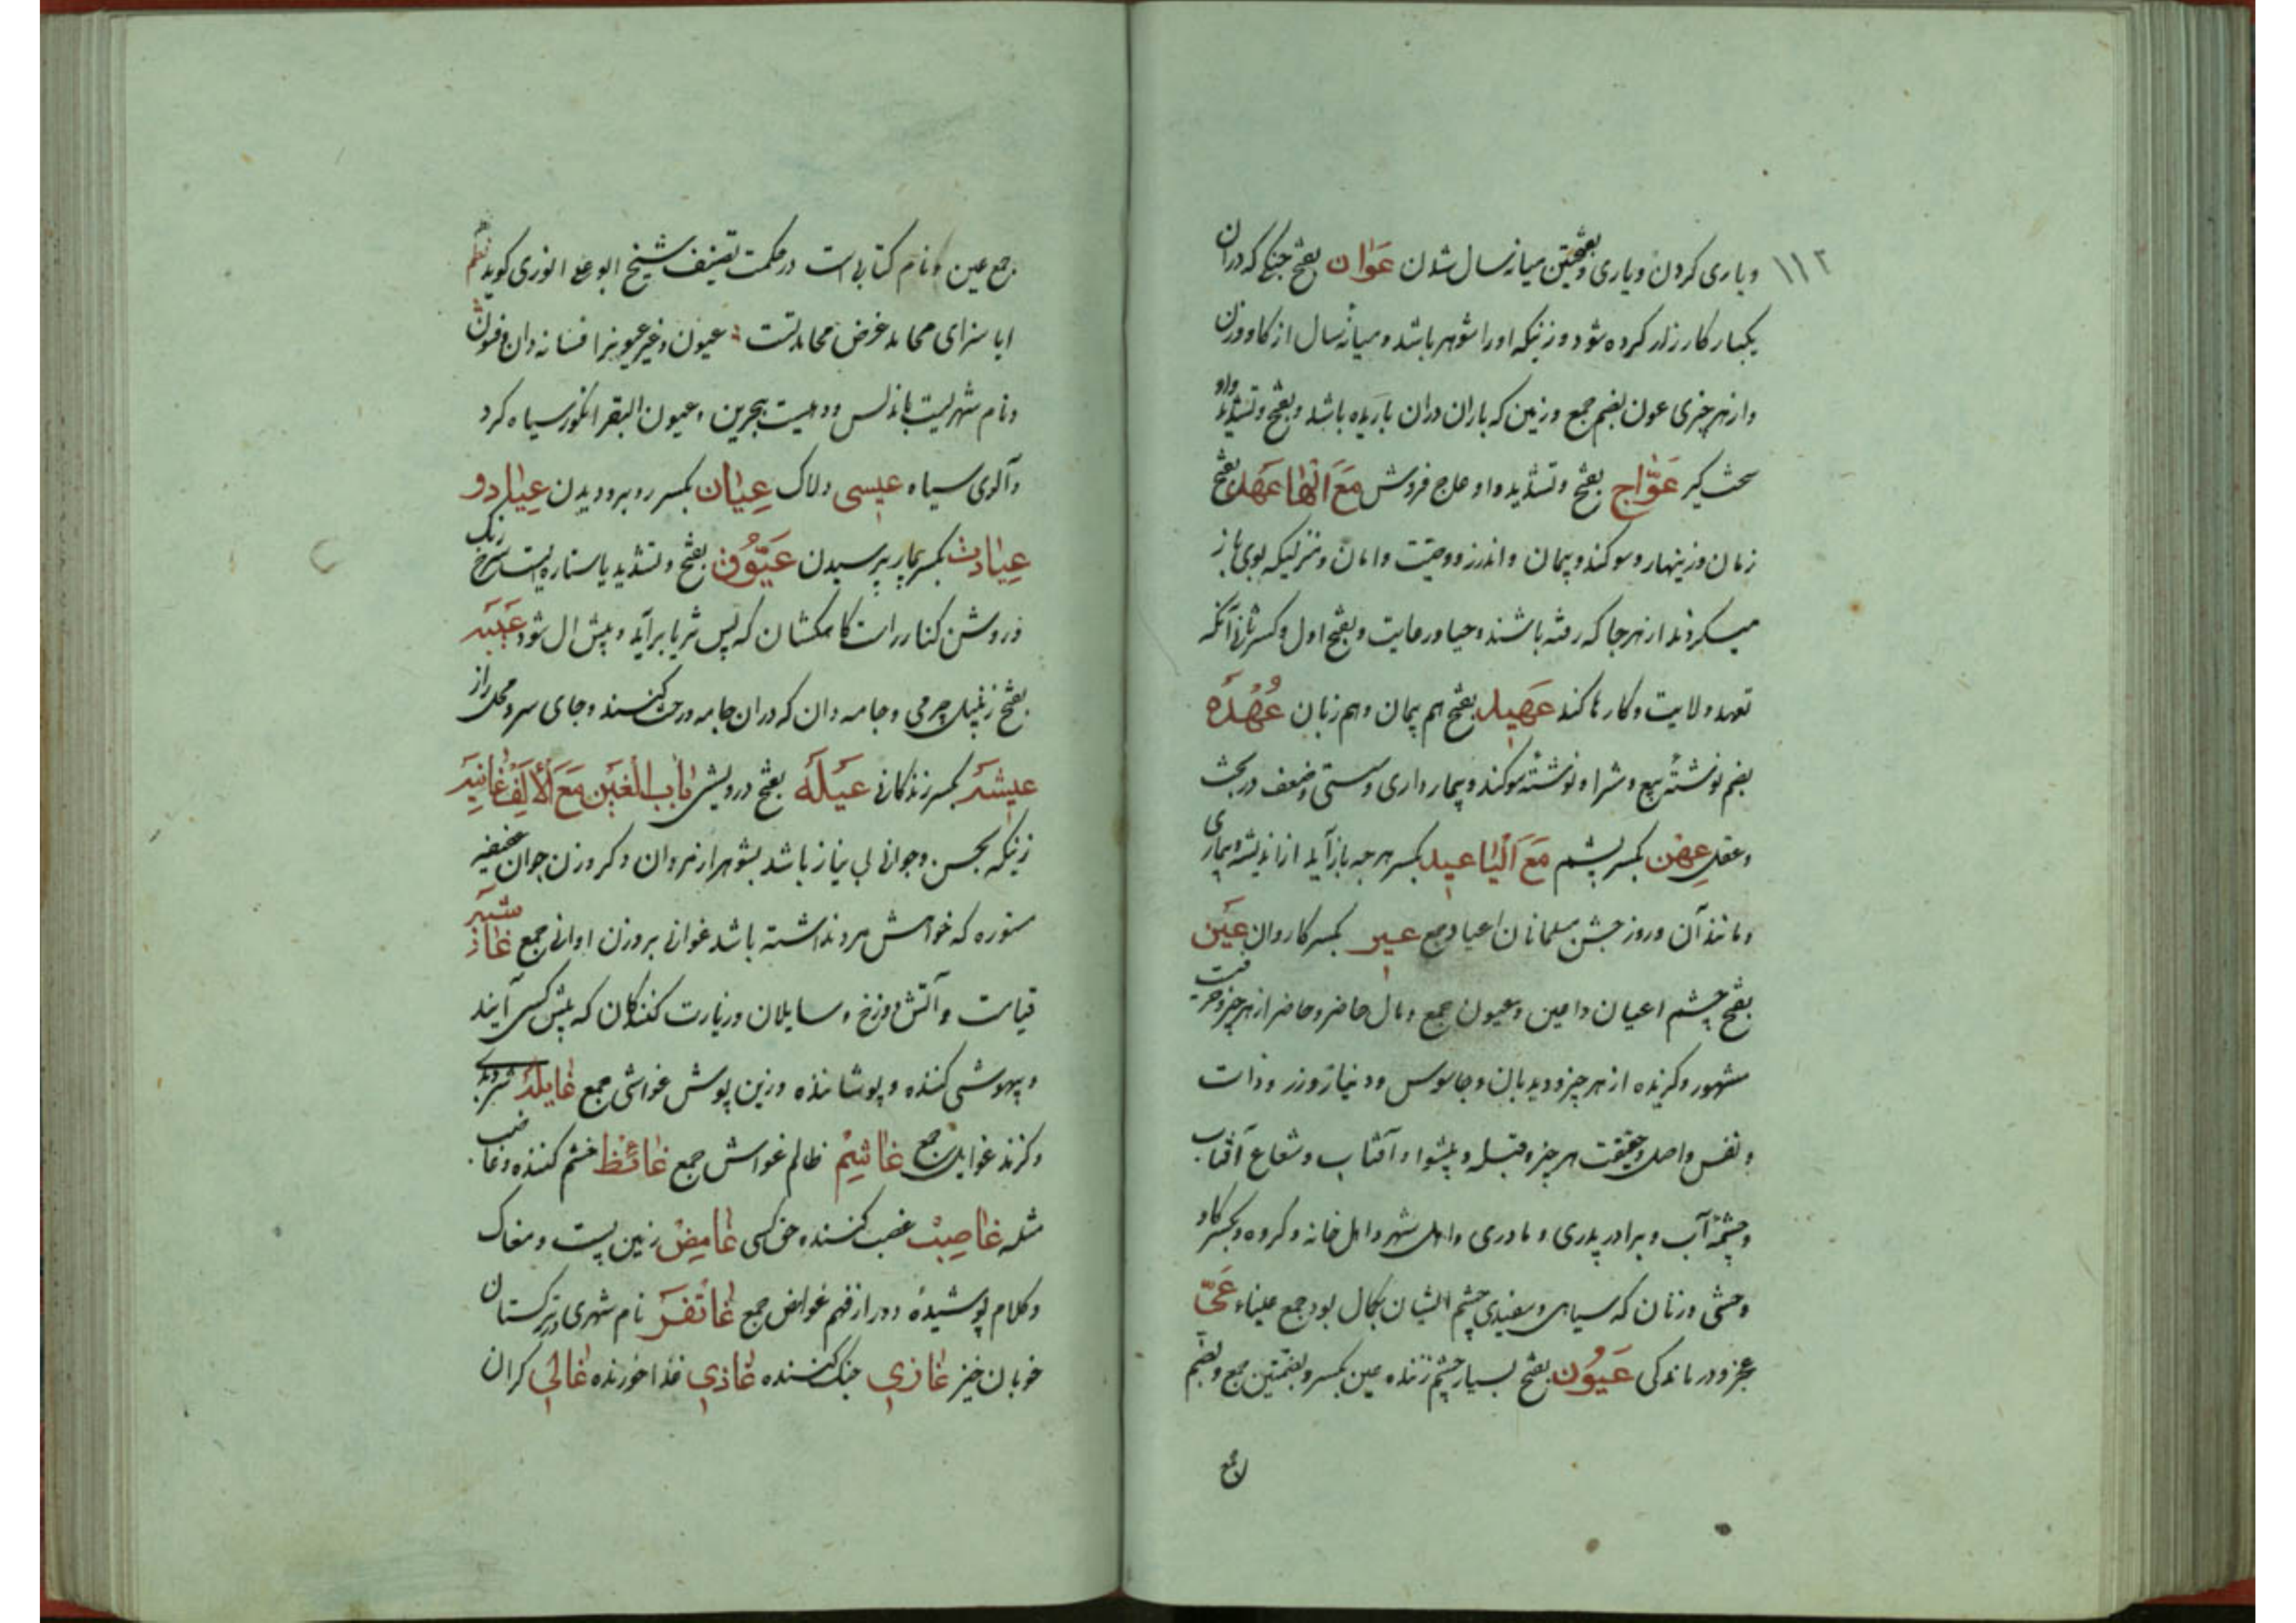 ۱۱۲
ویاری کردن ویاری وبفتحتین میانه سال شدن عَوان بفتح جنکی که دران
یکبار کارزار کرده شود وزنیکه اورا شوهر باشد ومیانه سال از کاو وزن
واز هر چیزی عون بضم جمع وزمین که باران دران باریده باشد وبفتح وتشدید واو
سخت کیر عَوّاج بفتح وتشدید واو عاج فروش مَعَ الْهَا عَهْد بفتح
زمان وزینهار وسوکند وپیمان واندرز ووصیت وامان ومنزلیکه بوی باز
میکردند از هر جا که رفته باشند وحیا ورعایت وبفتح اول وکسر ثانی آنکه
تعهد ولایت وکارها کند عَهِید بفتح هم پیمان وهم زبان عُهْدَه
بضم نوشتهٔ بیع وشرا ونوشتهٔ سوکند وبیمار داری وسستی وضعف در بحث
وعقل عِهْن بکسر پشم مَعَ الْیَا عید بکسر هرچه باز آید از اندیشه وبیماری
ومانند آن وروز جشن مسلمانان اعیاد جمع عیر بکسر کاروان عَیْن
بفتح چشم اعیان واعین وعیون جمع ومال حاضر وحاضر از هر چیز
مشهور وکزیده از هر چیز ودیدبان وجاسوس ودینار وزر وذات
ونفس واصل وحقیقت هر چیز وقبله وپیشوا وآفتاب وشعاع آفتاب
وچشمهٔ آب وبرادر پدری ومادری واهل شهر واهل خانه وکروه وبکسر کاو
وحشی وزنان که سیاهی وسفیدی چشم ایشان بکمال بود جمع عیناء عَیّ
عجز ودرماندکی عَیُون بفتح بسیار چشم زننده عین بکسر وبضمتین جمع وبضم
جمع عین ونام کتابی است در حکمت تصنیف شیخ ابو علی انوری کوید نظم
ایا سزای محامد غرض محامد تست عیون وغیر عیونرا فسانه دان وفسون
ونام شهریست باندلس ودهیست ببحرین وعیون البقر انکور سیاه کرد
وآلوی سیاه عیسی دلاک عِیَان بکسر روبرو دیدن عِیَار دو
عِیَادت بکسر بیمار پرسیدن عَیُّوق بفتح وتشدید یا ستاره ایست سرخ رنک
وروشن کنار راست کاهکشان که پس ثریا برآید وپیش ال شود عَیْبَه
بفتح زنبیل چرمی وجامه دان که دران جامه ورخت کنند وجای سر ومحل راز
عیشَه بکسر زندکانی عَیْلَه بفتح درویشی بَابُ الْغَیْن مَعَ الْاَلِف غَانِیَه
زنیکه بحسن وجوانی بی نیاز باشد بشوهر از مردان دکر وزن جوان عفیفه
ستوره که خواهش مرد نداشته باشد غوانی بر وزن اوانی جمع غاشیه
قیامت وآتش دوزخ وسایلان وزیارت کنندکان که پیش کسی آیند
وبیهوشی کننده وپوشاننده وزین پوش غواشی جمع غایله شر وبدی
وکزند غوایل جمع غاشِم ظالم غواش جمع غائظ خشم کننده وغاضب
مثله غاصِب غصب کننده حق کسی غامِض زمین پست ومغاک
وکلام پوشیده ودور از فهم غوامض جمع غاتفَر نام شهری در ترکستان
خوبان خیز غازِی جنک کننده غاذی غذا خورنده غالی کران